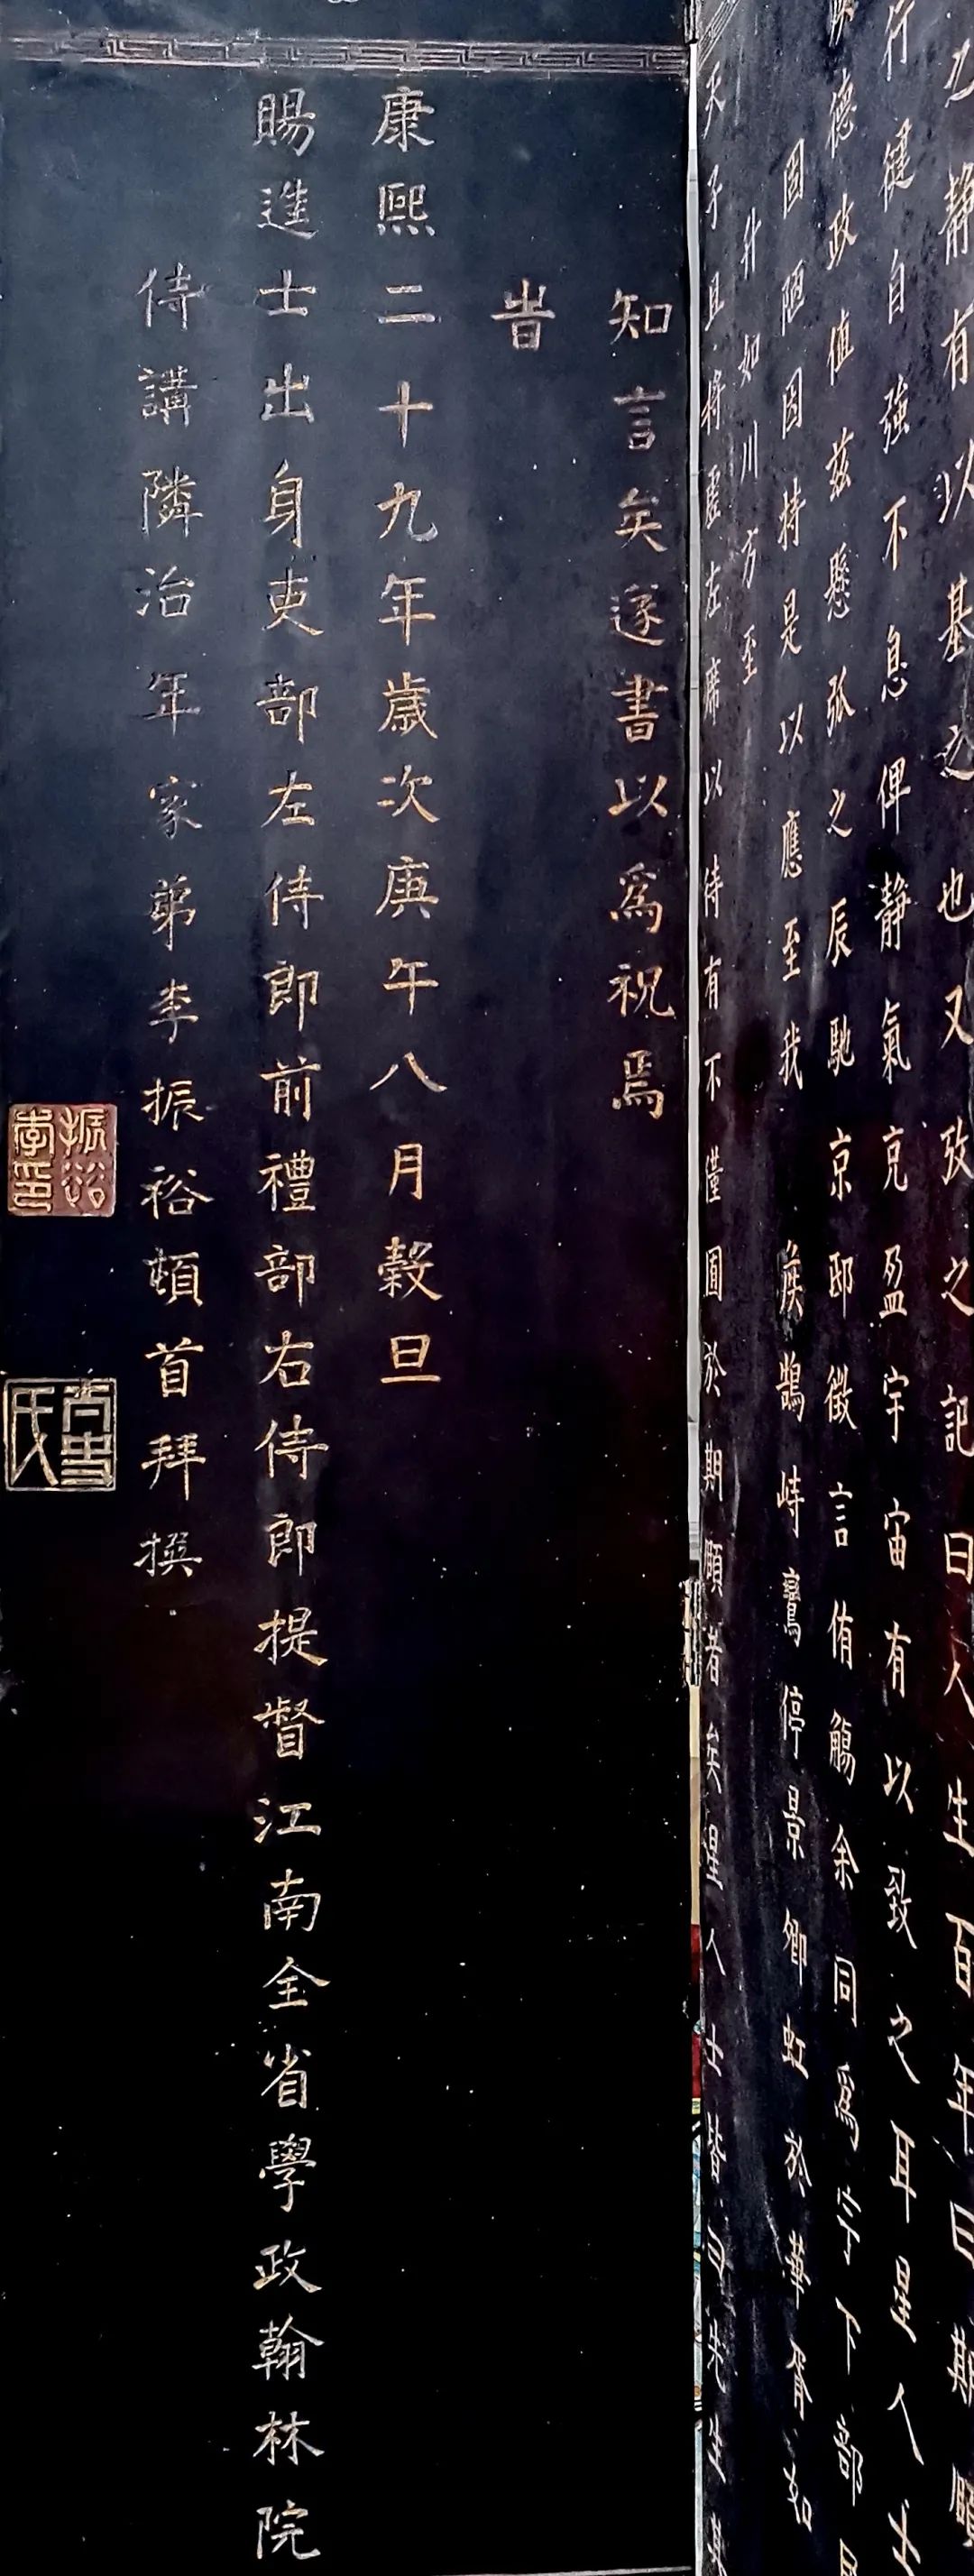 静有以基之也又攷之記曰人生百年曰期頤
行健自強不息俾靜氣克盈宇宙有以致之耳星人
德政值茲懸弧之辰馳京邸徵言侑觴余同為字下部
固陋因持是以應至我
侯鵠峙鸞停景卿虹於華胥如
升如川方至
天子且將虛左席以待有不僅圃於期頤者矣星人士皆曰先生
知言矣遂書以為祝焉
旹
康熙二十九年歲次庚午八月穀旦
賜進士出身吏部左侍郎前禮部右侍郎提督江南全省學政翰林院
侍講隣治年家弟李振裕頓首拜撰
李振裕印